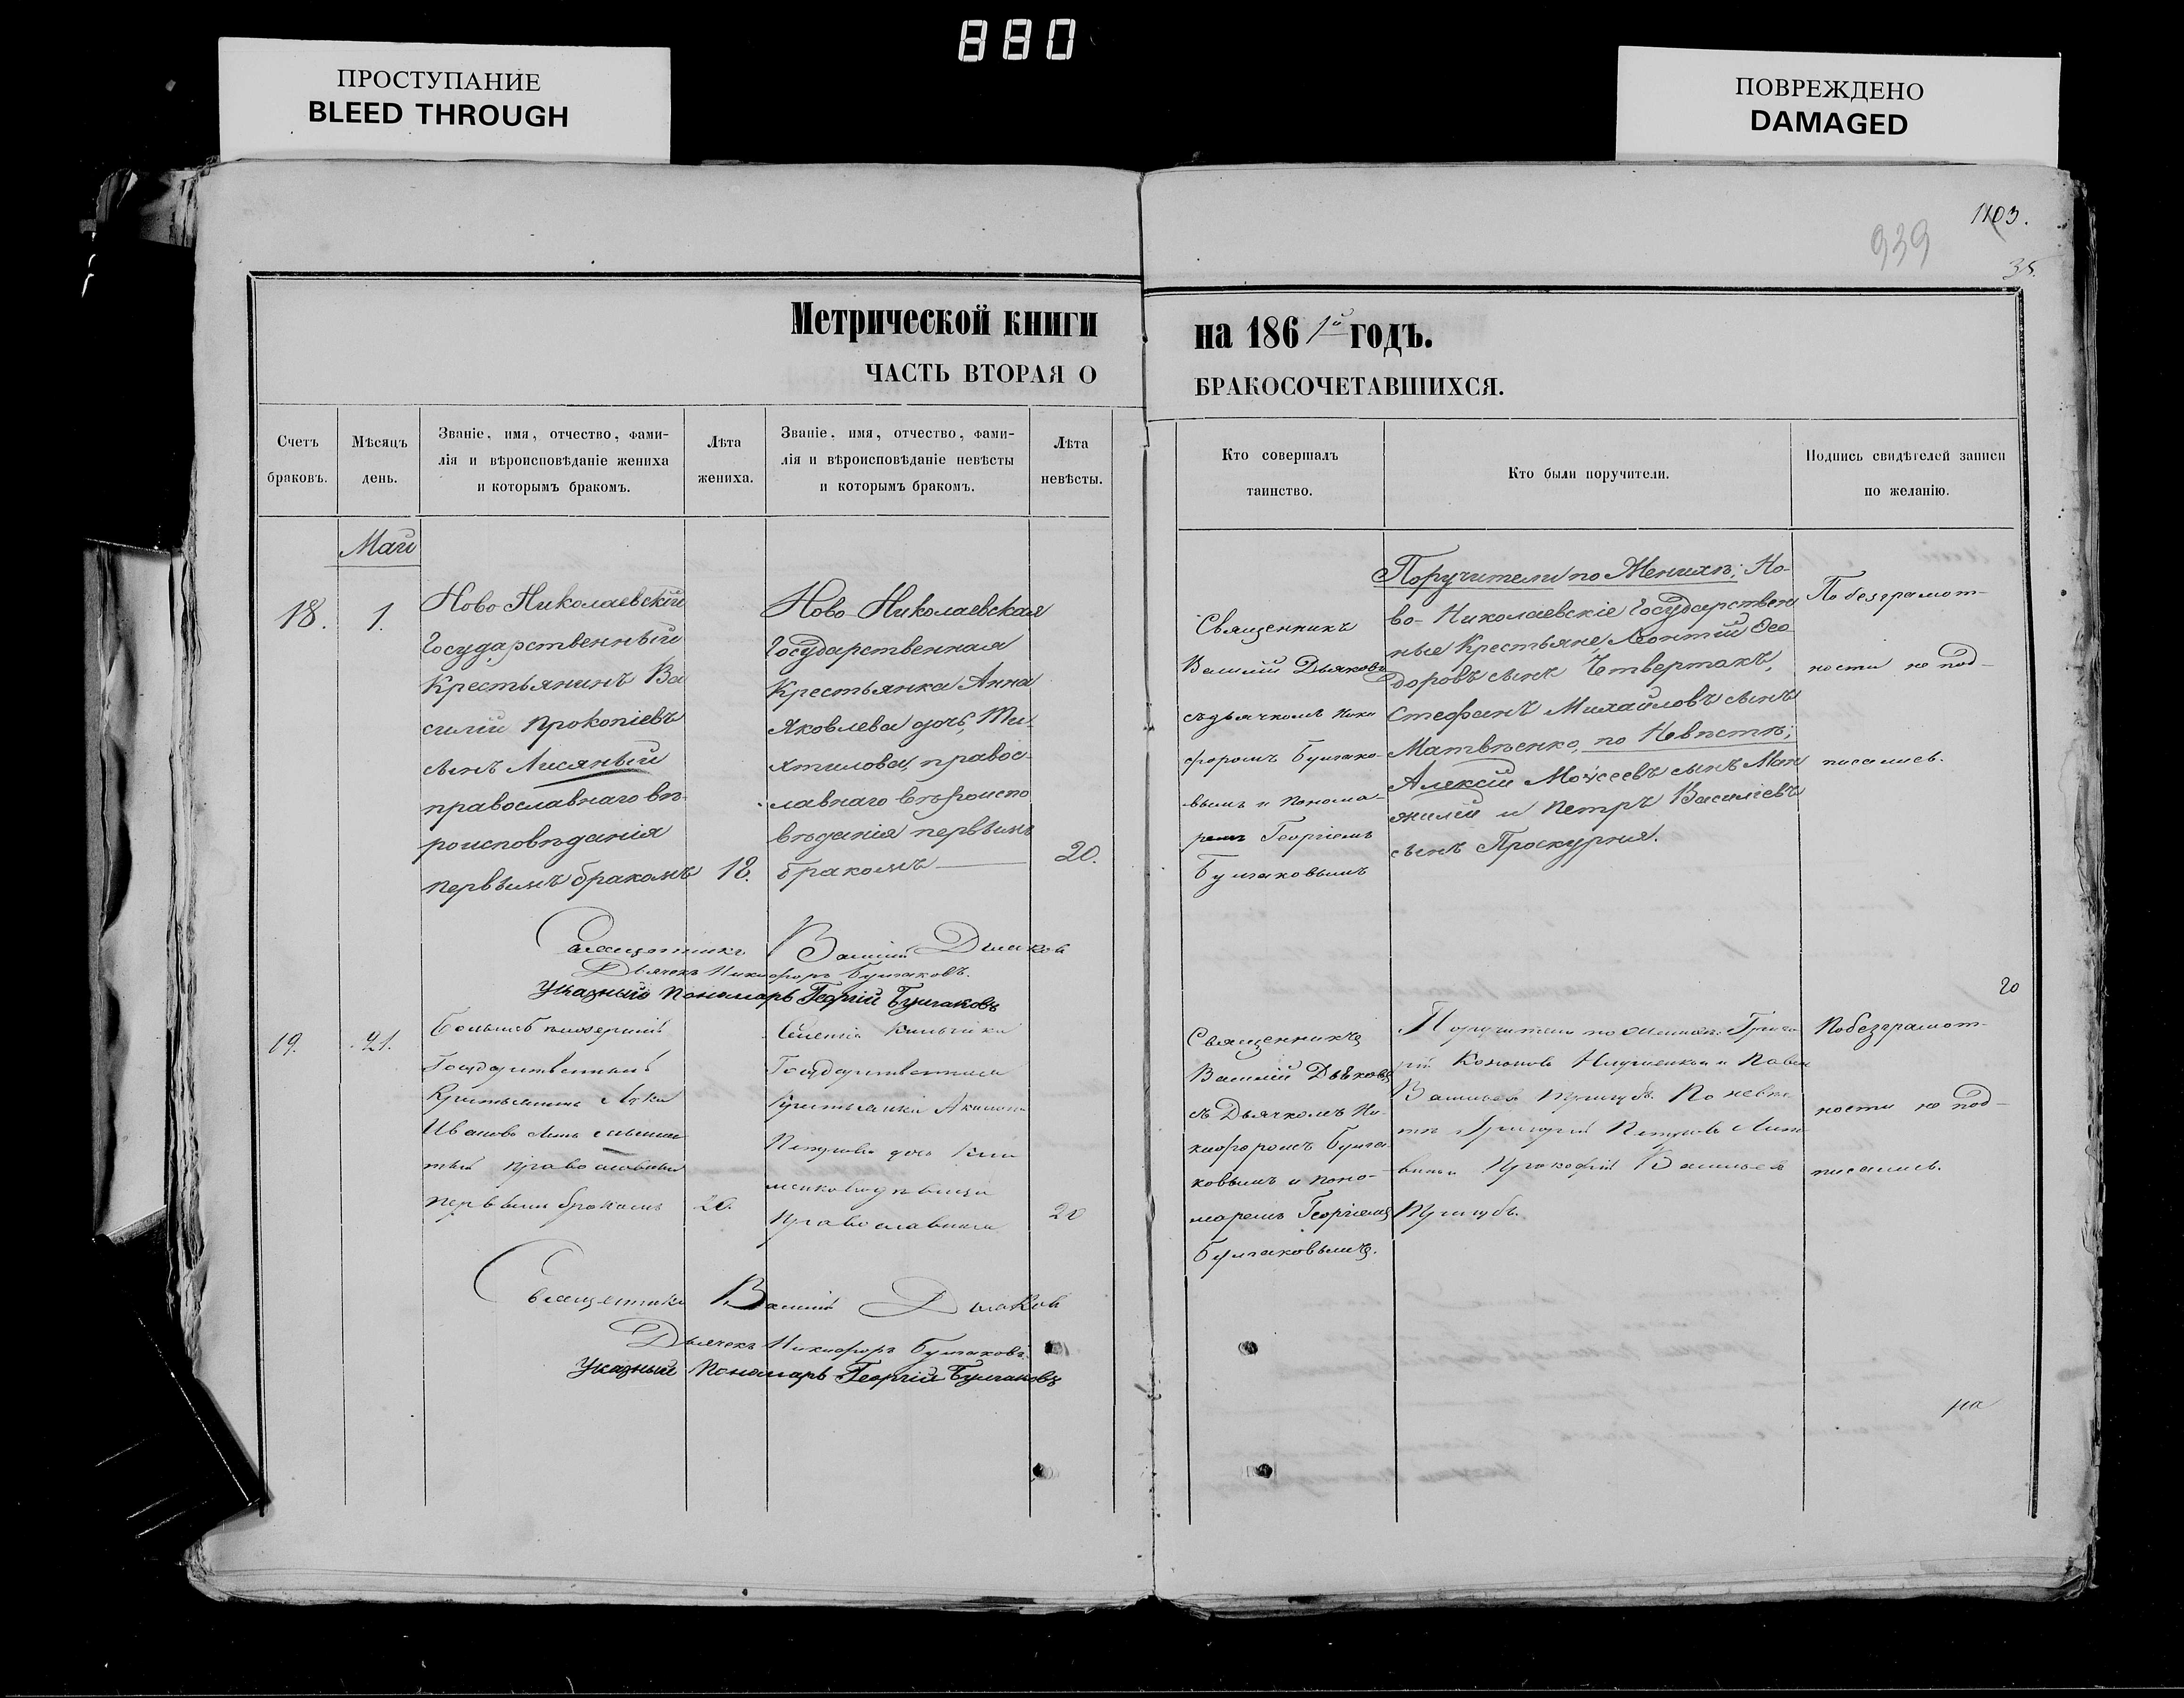 880
ПРОСТУПАНИЕ
BLEED THROUGH
ПОВРЕЖДЕНО
DAMAGED
1103.
939
35.
Метрической книги на 1861й годъ.
ЧАСТЬ ВТОРАЯ О БРАКОСОЧЕТАВШИХСЯ.
Счетъ
браковъ.
Мѣсяцъ
день.
Званіе, имя, отчество, фами-
лія и вѣроисповѣданіе жениха
и которымъ бракомъ.
Лѣта
жениха.
Званіе, имя, отчество, фами-
лія и вѣроисповѣданіе невѣсты
и которымъ бракомъ.
Лѣта
невѣсты.
Кто совершалъ
таинство.
Кто были поручители.
Подпись свидѣтелей записи
по желанію.
Май
18.
1.
Ново Николаевскій
Государственный
Крестьянинъ Ва
силій Прокопіевъ
сынъ Лисяный
православнаго вѣ-
роисповѣданія
первымъ бракомъ
18.
Ново-Николаевская
Государственная
Крестьянка Анна
Яковлева дочь,
православ-
лавнаго вѣроиспо
вѣданія первымъ
бракомъ
20.
Священникъ
Василій Дьяковъ
съ дьячкомъ Ники
форомъ Булгако-
вымъ и Понома-
ремъ Георгіемъ
Булгаковымъ
Поручители по Женихѣ; Но-
во-Николаевскіе Государствен
ные Крестьяне, Леонтій Ѳео
доровъ сынъ Четвертакъ,
Стефанъ Михайловъ сынъ
Матвѣенко, по Невѣстѣ;
Алексій Моѵсеевъ сынъ Ман
жилій и Петръ Василіевъ
сынъ Проскурня.
По безграмот-
ности не под-
писались.
Священникъ Василій Дьяковъ
Дьячекъ Никифоръ Булгаковъ.
Указный Пономарь Георгій Булгаковъ
20
19.
21.
Государственный
Крестьянинъ Лука
Ивановъ сынъ
православный
первымъ бракомъ
20.
Государственная
Крестьянка
Петрова дочь
дѣвица
Православная
20
Священникъ
Василій Дьяковъ
съ Дьячкомъ Ни-
кифоромъ Булга-
ковымъ и Поно-
маремъ Георгіемъ
Булгаковымъ.
Поручители по женихѣ: Григо
рій Кононовъ и Павелъ
Васильевъ По невѣс
тѣ Григорій Петровъ Лит
винъ и Прокофій Васильевъ
По безграмот-
ности не под-
писались.
Священникъ Василій Дьяковъ
Дьячекъ Никифоръ Булгаковъ.
Указный Пономарь Георгій Булгаковъ